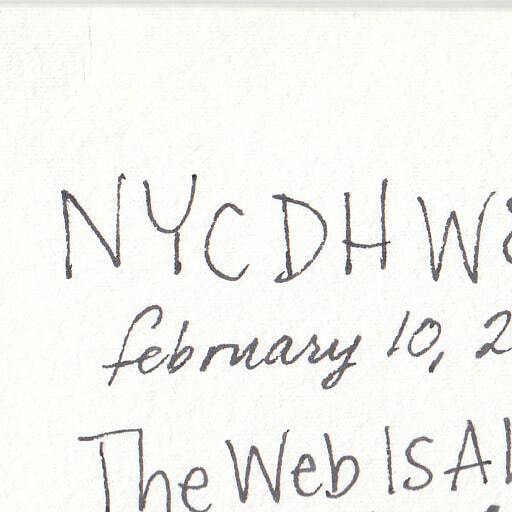 NYCDH
february 10, 2
The Web Is